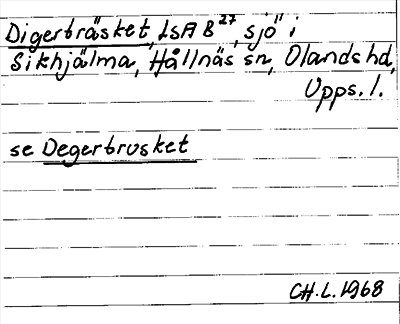 Digerträsket, LSA B²⁷, sjö i
Sikhjälma, Hållnäs sn, Olands hd,
Upps. l.
se Degertrusket
CH.L. 1968